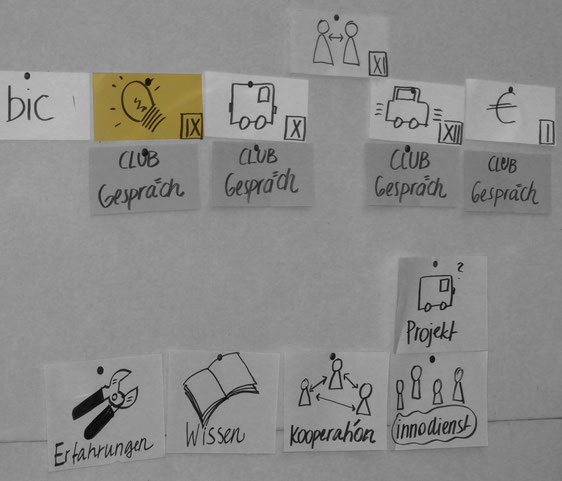 XI
bic
IX
X
XII
€
I
CLUB
Gespräch
CLUB
Gespräch
CLUB
Gespräch
CLUB
Gespräch
?
Projekt
Erfahrungen
Wissen
Kooperation
innodienst